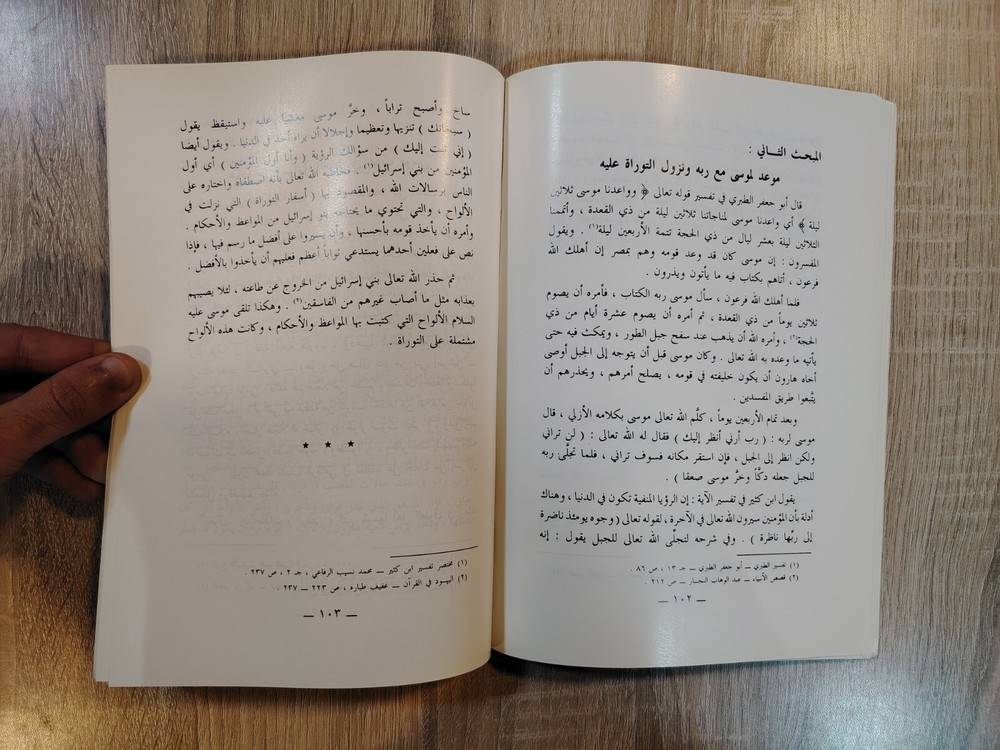 المبحث الثـــاني :
موعد لموسى مع ربه ونزول التوراة عليه
قال أبو جعفر الطبري في تفسير قوله تعالى ﴿ وواعدنا موسى ثلاثين
ليلة ﴾ أي واعدنا موسى لمناجاتنا ثلاثين ليلة من ذي القعدة ، وأتممنا
الثلاثين ليلة بعشر ليال من ذي الحجة تتمة الأربعين ليلة(١) . ويقول
المفسرون : إن موسى كان قد وعد قومه وهم بمصر إن أهلك الله
فرعون ، أتاهم بكتاب فيه ما يأتون ويذرون .
فلما أهلك الله فرعون ، سأل موسى ربه الكتاب ، فأمره أن يصوم
ثلاثين يوماً من ذي القعدة ، ثم أمره أن يصوم عشرة أيام من ذي
الحجة(٢) ، وأمره الله أن يذهب عند سفح جبل الطور ، ويمكث فيه حتى
يأتيه ما وعده به الله تعالى . وكان موسى قبل أن يتوجه إلى الجبل أوصى
أخاه هارون أن يكون خليفته في قومه ، يصلح أمرهم ، ويحذرهم أن
يتَّبعوا طريق المفسدين .
وبعد تمام الأربعين يوماً ، كلَّم الله تعالى موسى بكلامه الأزلي ، قال
موسى لربه : ( رب أرني أنظر إليك ) فقال له الله تعالى : ( لن تراني
ولكن انظر إلى الجبل ، فإن استقر مكانه فسوف تراني ، فلما تجلَّى ربه
للجبل جعله دكَّاً وخرَّ موسى صعقا ) .
يقول ابن كثير في تفسير الآية : إن الرؤيا المنفية تكون في الدنيا ، وهناك
أدلة بأن المؤمنين سيرون الله تعالى في الآخرة ، لقوله تعالى ( وجوه يومئذ ناضرة
إلى ربِّها ناظرة ) . وفي شرحه لتجلَّي الله تعالى للجبل يقول : إنه
(١) تفسير الطبري ـ أبو جعفر الطبري ـ جـ ١٣ ، ص ٨٦ .
(٢) قصص الأنبياء ـ عبد الوهاب النجـار ـ ص ٢١٢ .
ـ ١٠٢ ـ
ساخ وأصبح تراباً ، وخرَّ موسى مغشياً عليه واستيقظ يقول
( سبحانك ) تنزيها وتعظيما وإجلالا أن يراه أحد في الدنيا . ويقول أيضا
( إني تبت إليك ) من سؤالك الرؤية ( وأنا أول المؤمنين ) أي أول
المؤمنين من بني إسرائيل(١) . فخاطبه الله تعالى بأنه اصطفاه واختاره على
الناس برسالات الله ، والمقصود بها ( أسفار التوراة ) التي نزلت في
الألواح ، والتي تحتوي ما يحتاجه بنو إسرائيل من المواعظ والأحكام .
وأمره أن يأخذ قومه بأحسنها ، وأن يسيروا على أفضل ما رسم فيها ، فإذا
نص على فعلين أحدهما يستدعي ثواباً أعظم فعليهم أن يأخذوا بالأفضل .
ثم حذر الله تعالى بني إسرائيل من الخروج عن طاعته ، لئلا يصيبهم
بعذابه مثل ما أصاب غيرهم من الفاسقين(٢) . وهكذا تلقى موسى عليه
السلام الألواح التي كتبت بها المواعظ والأحكام ، وكانت هذه الألواح
مشتملة على التوراة .
★ ★ ★
(١) مختصر تفسير ابن كثير ـ محمد نسيب الرفاعي ، جـ ٢ ، ص ٢٣٧ .
(٢) اليهود في القرآن ـ عفيف طباره ، ص ٢٢٣ ـ ٢٣٧ .
ـ ١٠٣ ـ